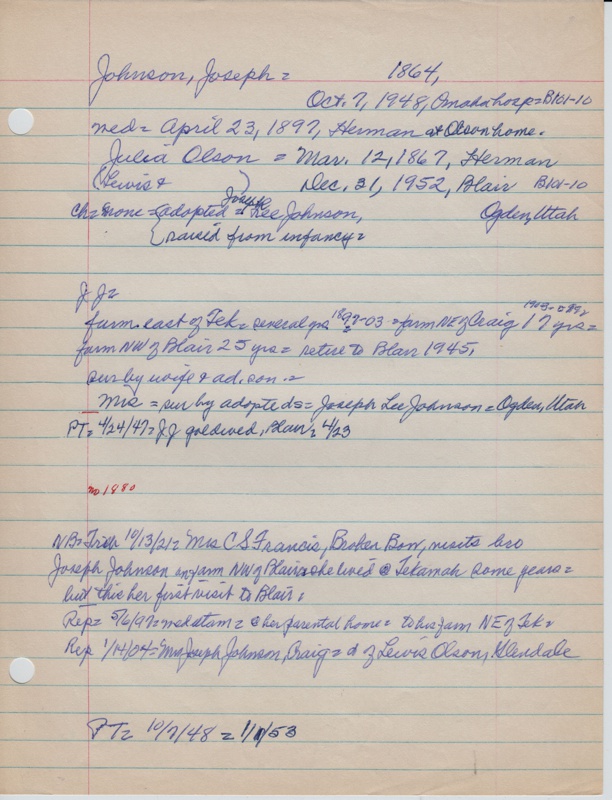 Johnson, Joseph = 1864,
Oct. 7, 1948, Omaha hosp = B101-10
med = April 23, 1897, Herman at Olson home.
Julia Olson = Mar. 12, 1867, Herman
(Lewis & ) Dec. 31, 1952, Blair B101-10
ch = none = adopted = Joseph Lee Johnson, Ogden, Utah
{ raised from infancy =
J J =
farm east of Tek = several yrs 1897-03 = farm NE of Craig 17 yrs =
farm NW of Blair 25 yrs = retire to Blair 1945,
sur by wife & ad. son =
Mrs = sur by adopted s = Joseph Lee Johnson = Ogden, Utah
PT = 4/24/47 = JJ gold wed, Blair = 4/23
no 1880
NB = 10/13/21 = Mrs C S Francis, Broken Bow, visits bro
Joseph Johnson on farm NW of Blair she lived @ Tekamah some years =
but this her first visit to Blair.
Rep = 5/6/97 = med at am = @ her parental home = to his farm NE of Tek =
Rep 1/14/04 = Mrs Joseph Johnson, Craig = d of Lewis Olson, Glendale
PT = 10/7/48 = 53